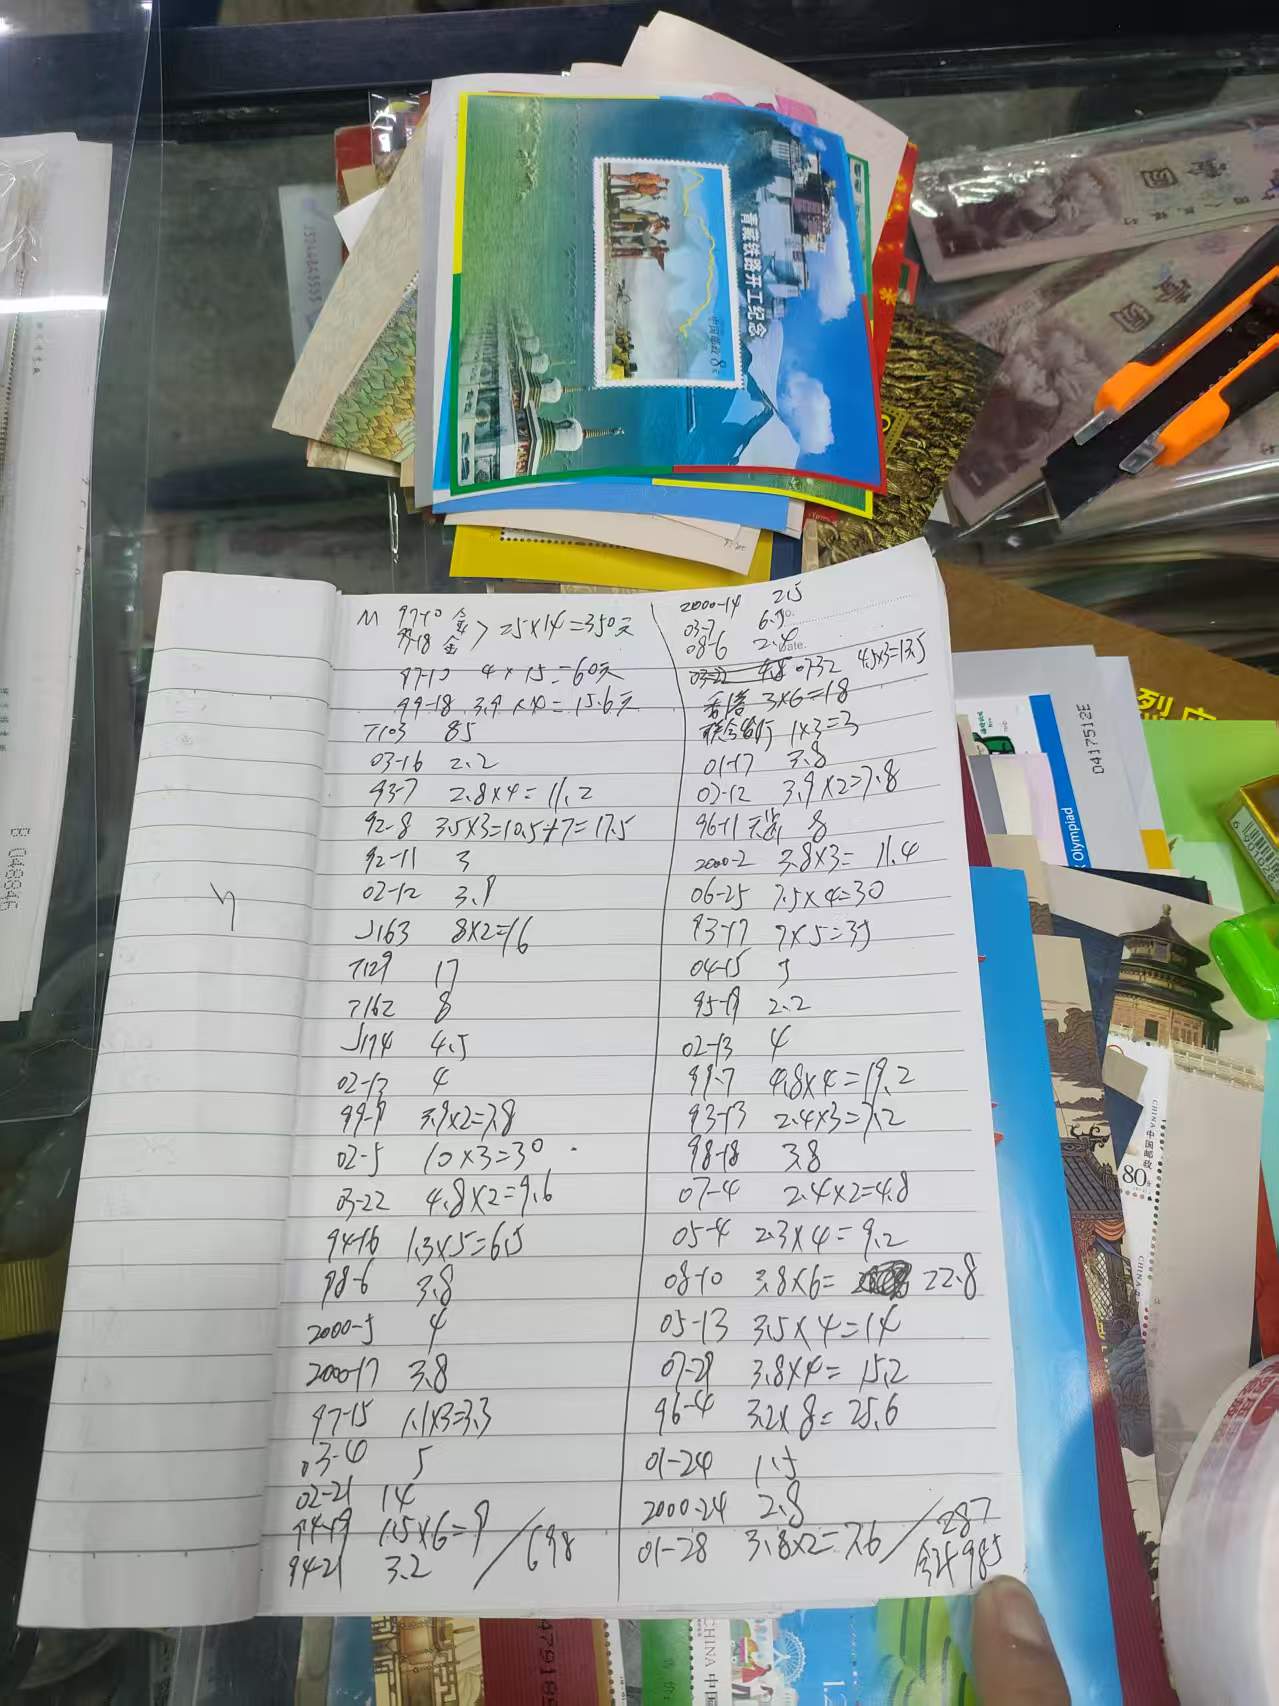 青藏铁路开工纪念
中国邮政 8元
M 97-10 金
99-18 金 > 25×14=350元
97-10 4×15=60元
99-18 3.9×4=15.6元
T103 85
03-16 2.2
93-7 2.8×4=11.2
92-8 3.5×3=10.5+7=17.5
92-11 3
02-12 3.9
J163 8×2=16
T129 17
T162 8
J174 4.5
02-13 4
99-9 3.9×2=7.8
02-5 10×3=30
03-22 4.8×2=9.6
94-16 1.3×5=6.5
98-6 3.8
2000-5 4
2000-17 3.8
97-15 1.1×3=3.3
03-4 5
02-21 14
94-19 1.5×6=9
94-21 3.2 / 698
2000-14 2.5
03-7 6.5
08-6 2.4
Date.
03-22 4.8 0732 4.5×3=13.5
3×6=18
联合发行 1×3=3
01-17 3.8
02-12 3.9×2=7.8
96-11 8
2000-2 3.8×3= 11.4
06-25 7.5×4=30
93-17 7×5=35
04-15 5
95-19 2.2
02-13 4
99-7 4.8×4=19.2
93-13 2.4×3=7.2
98-18 3.8
07-4 2.4×2=4.8
05-4 2.3×4=9.2
08-10 3.8×6= 22.8
05-13 3.5×4=14
07-29 3.8×4= 15.2
96-4 3.2×8=25.6
01-24 1.5
2000-24 2.8
01-28 3.8×2=7.6 / 287
合计985
0417512E
Olympiad
中国邮政
CHINA
80分
E 048846
CHINA 中国